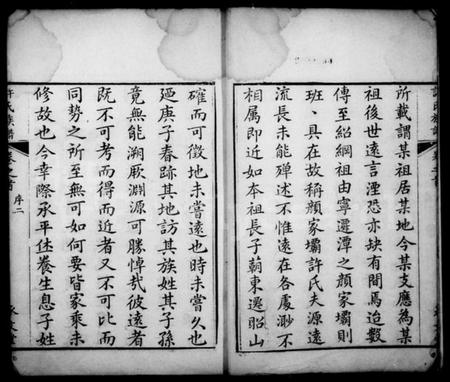 所載謂某祖居某地今某支應為某
祖後世遠言湮恐亦缺有間焉迨數
傳至紹綱祖由寧遷潭之顔家壩則
班班具在故稱顔家壩許氏夫源遠
流長未能殫述不惟遠在各處渺不
相属即近如本祖長子萠東遷昭山
確而可徵地未嘗遠也時未嘗久也
廼庚子春跡其地訪其族姓其子孫
竟無能溯厥淵源可勝悼哉彼遠者
既不可考而得而近者又不可比而
同勢之所至無可如何要皆家乘未
修故也今幸際承平休養生息子姓
許氏族譜
卷之首
序二